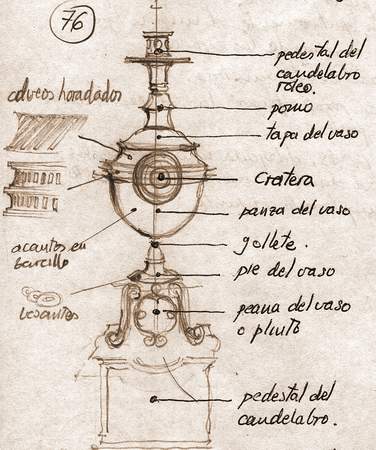 76
pedestal del
candelabro
roleo.
pomo
tapa del vaso
cratera
panza del vaso
gollete.
pie del vaso
peana del vaso
o plinto
pedestal del
candelabro.
alveos horadados
acantos en
besantes